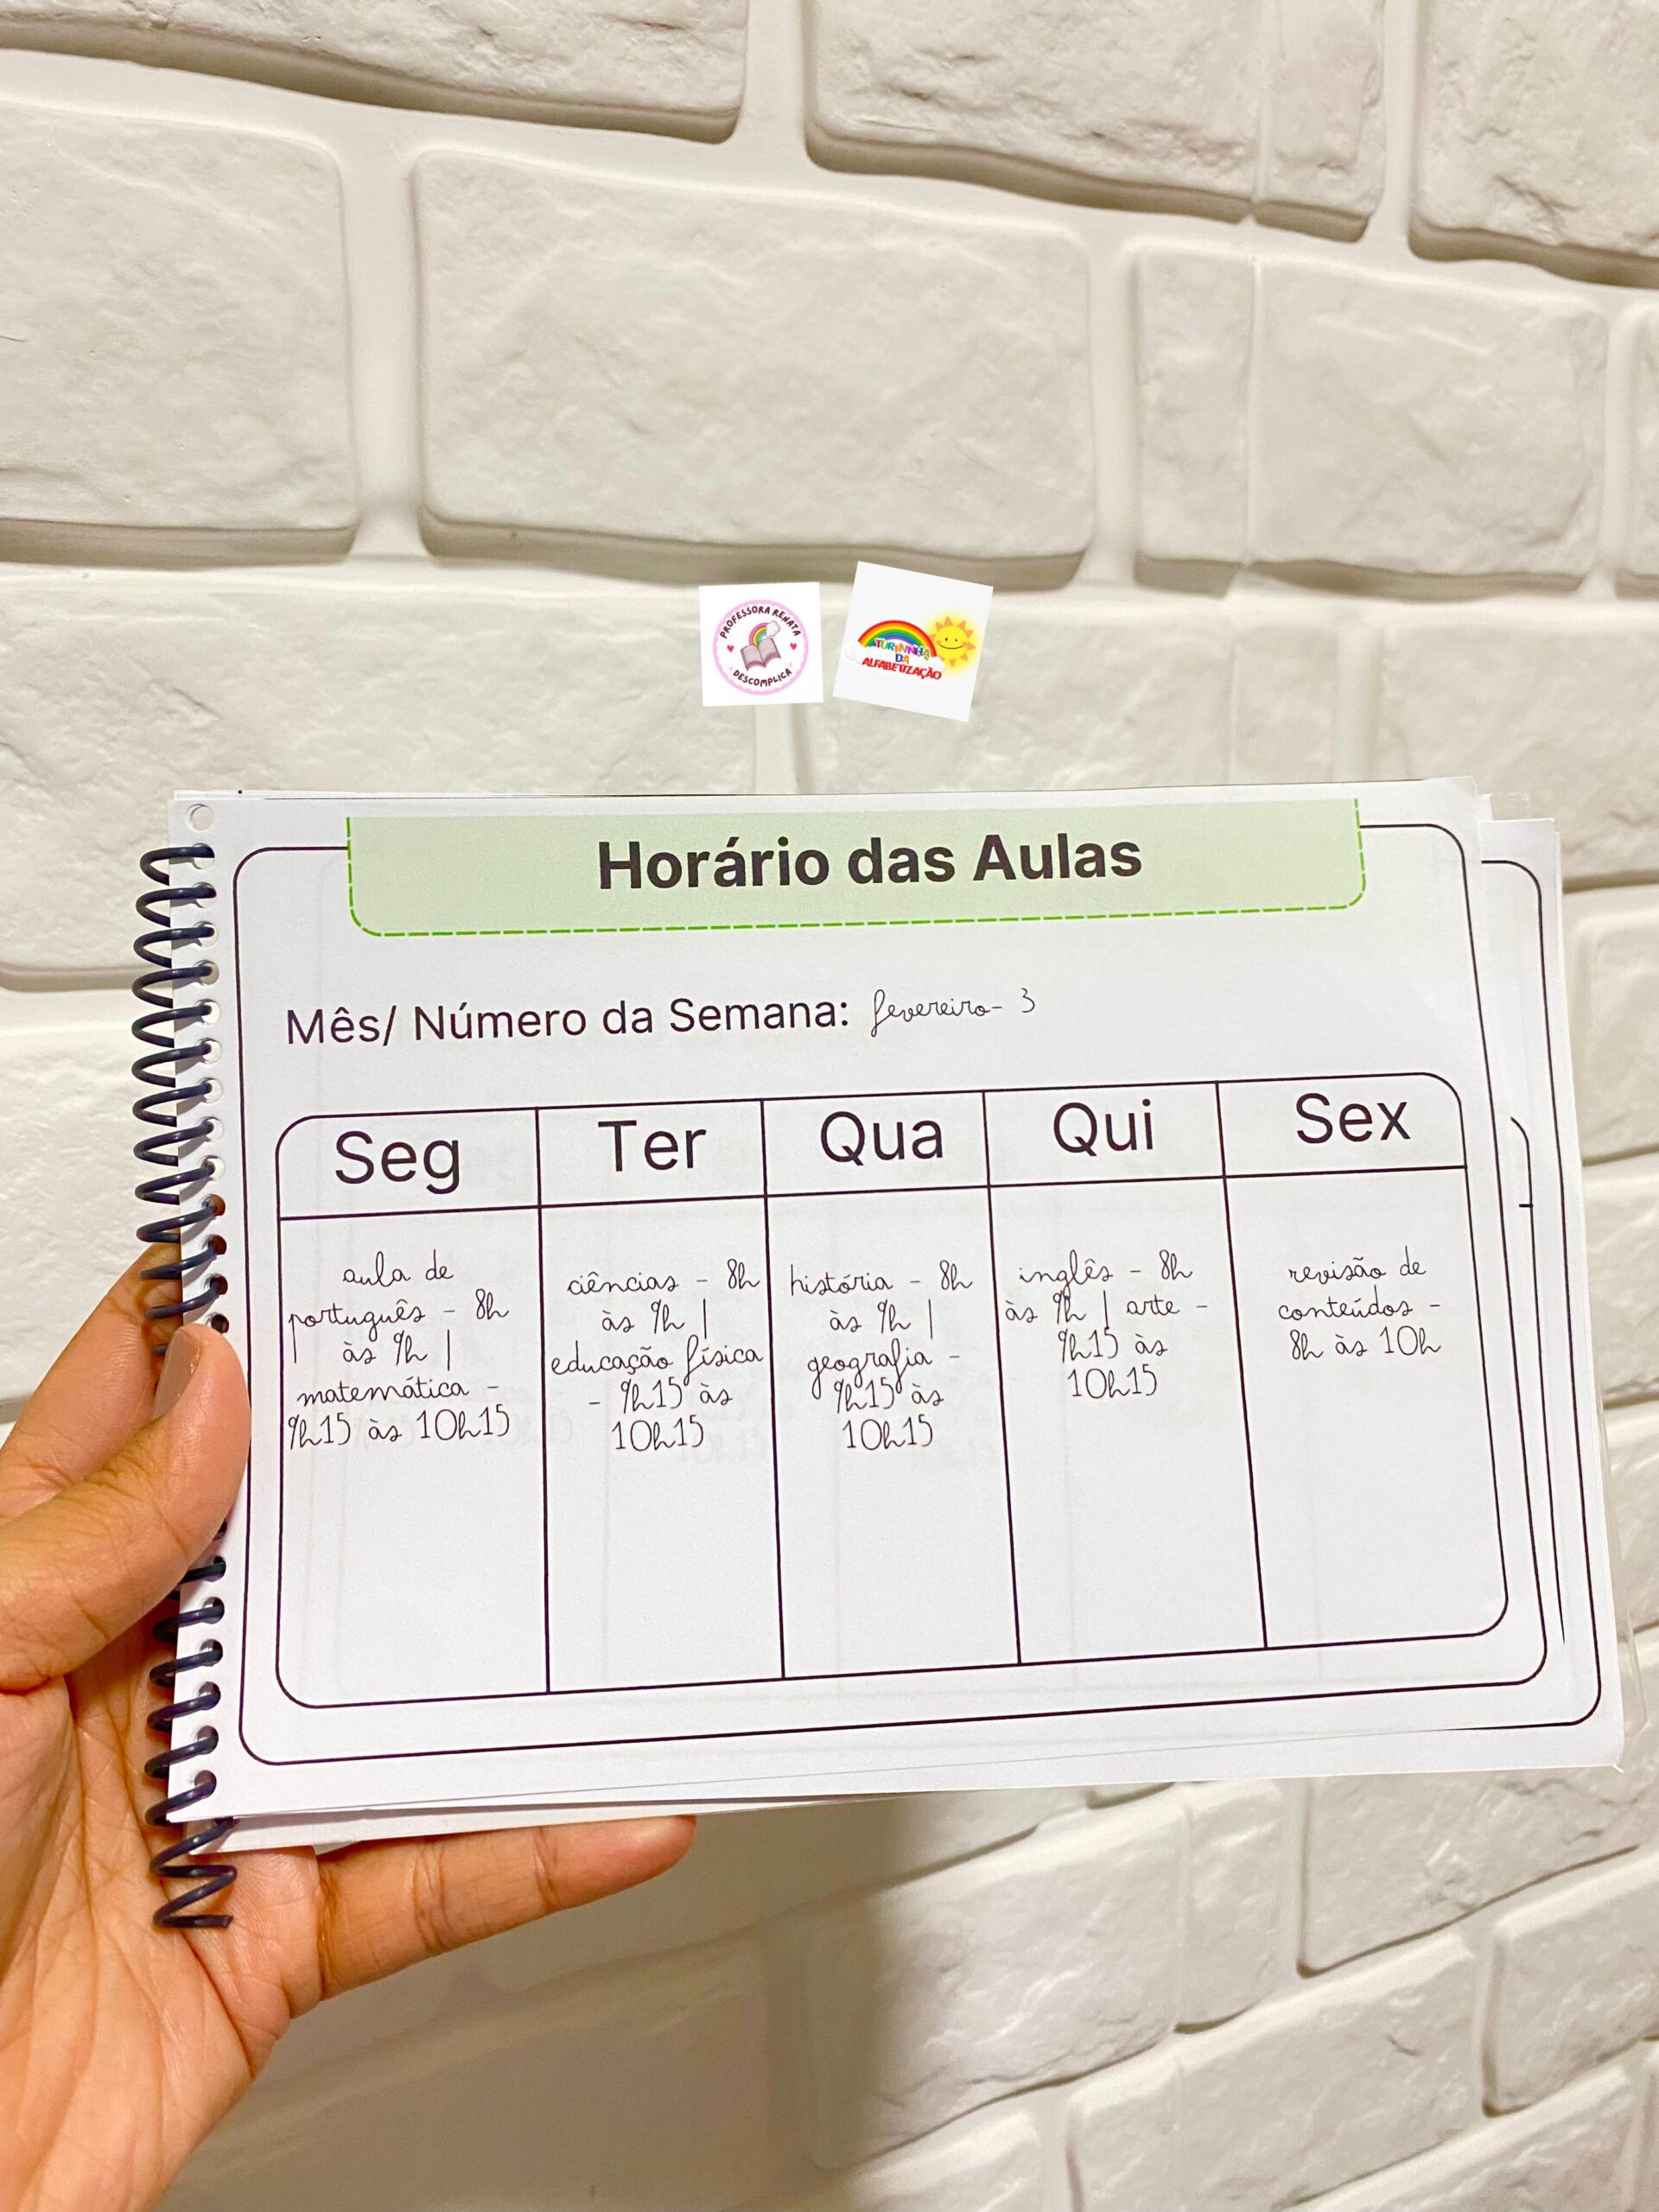 PROFESSORA RENATA
DESCOMPLICA
TURMINHA
DA
ALFABETIZAÇÃO
Horário das Aulas
Mês/ Número da Semana: fevereiro- 3
Seg
Ter
Qua
Qui
Sex
aula de
português - 8h
às 9h |
matemática -
9h15 às 10h15
ciências - 8h
às 9h |
educação física
- 9h15 às
10h15
história - 8h
às 9h |
geografia -
9h15 às
10h15
inglês - 8h
às 9h | arte -
9h15 às
10h15
revisão de
conteúdos -
8h às 10h